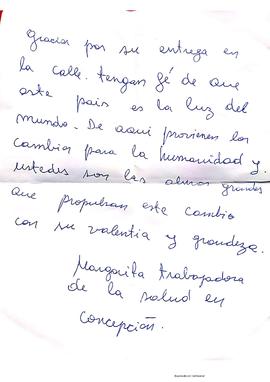 Gracias por su entrega en
la calle. tengan fé de que
este pais es la luz del
mundo. De aqui provienen los
cambios para la humanidad y
ustedes son las almas grandes
que propulsan este cambio
con su valentia y grandeza.
Margarita trabajadora
de la salud en
Concepción.